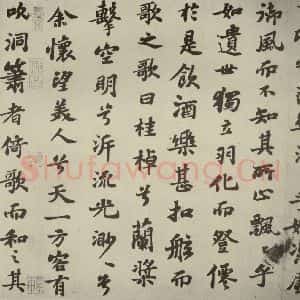 御風而不知其所止飄〻乎
如遺世獨立羽化而登僊
於是飲酒樂甚扣舷而
歌之歌曰桂棹兮蘭槳
擊空明兮泝流光渺〻兮
余懷望美人兮天一方客有
吹洞簫者倚歌而和之其
Shufawang.CN